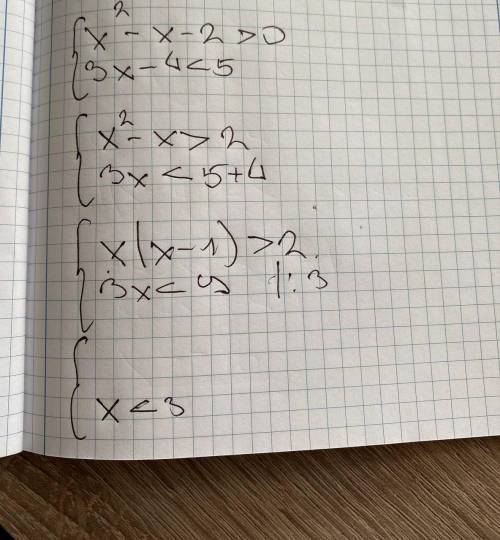 x² - x - 2 > 0
3x - 4 < 5
x² - x > 2
3x < 5+4
x(x-1) > 2
3x < 9 |: 3
x < 3